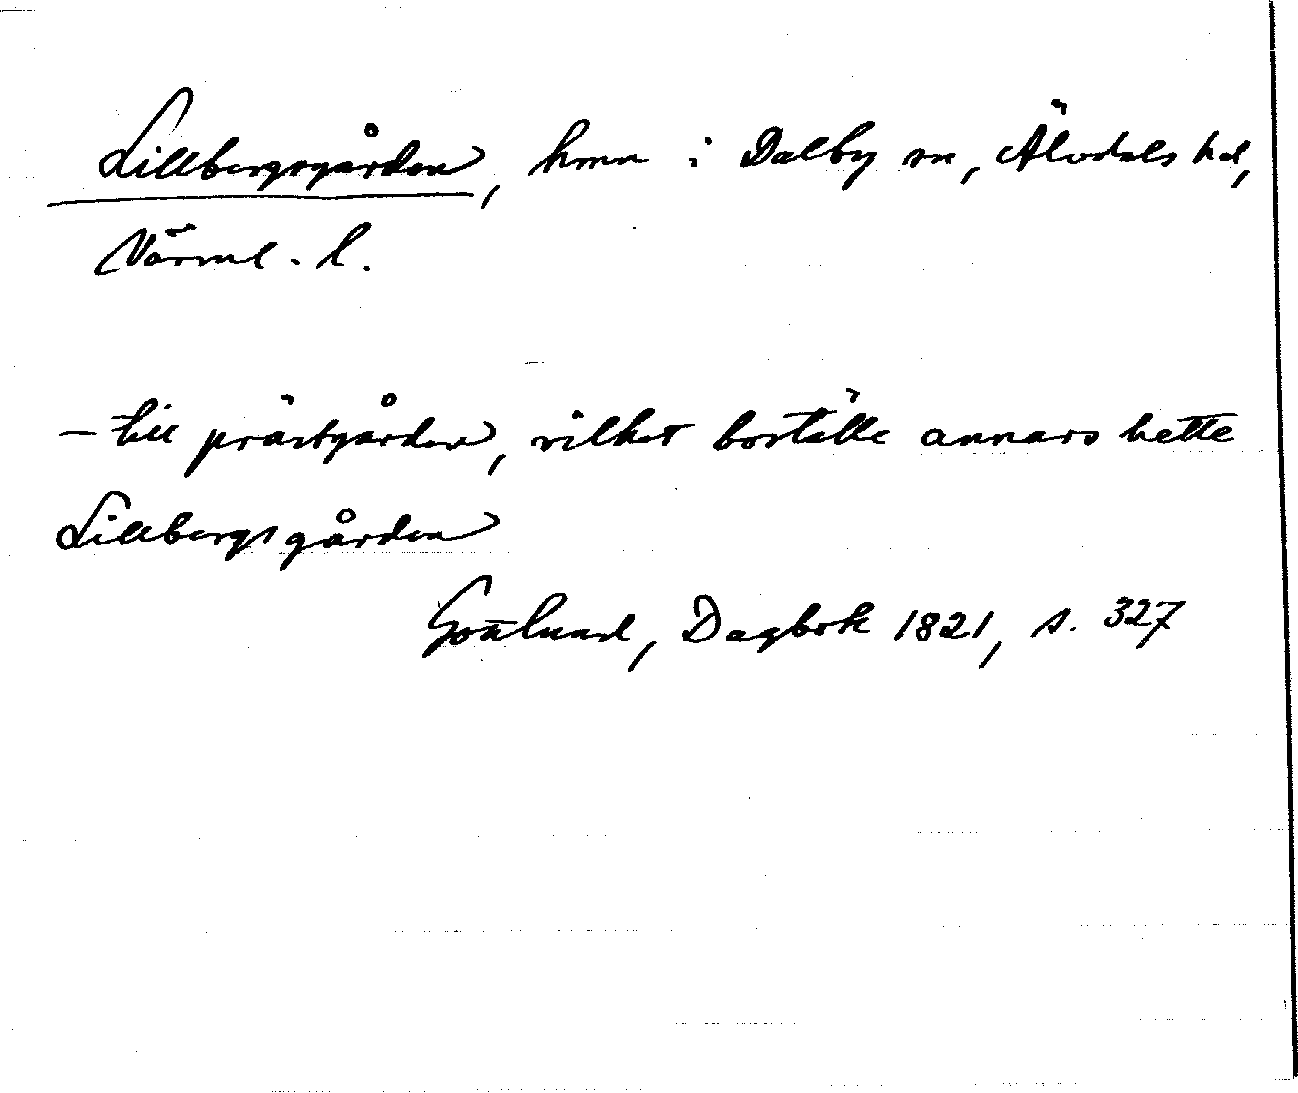 Lillbergsgården, hmn i Dalby sn, Älvdals hd,
Värml. l.
– till prästgården, vilket boställe annars hette
Lillbergsgården
Gottlund, Dagbok 1821, s. 327